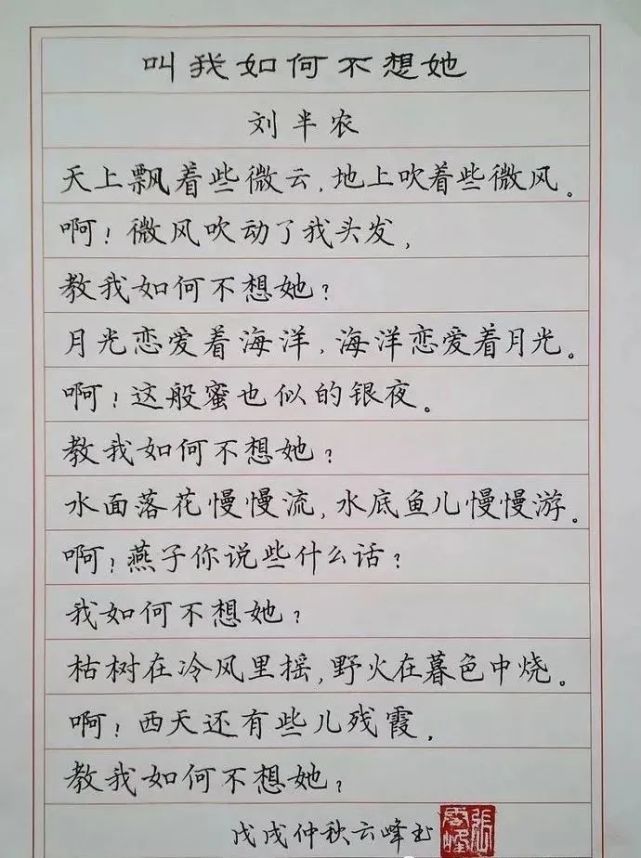 叫我如何不想她
刘半农
天上飘着些微云,地上吹着些微风。
啊!微风吹动了我头发,
教我如何不想她?
月光恋爱着海洋,海洋恋爱着月光。
啊!这般蜜也似的银夜。
教我如何不想她?
水面落花慢慢流,水底鱼儿慢慢游。
啊!燕子你说些什么话?
我如何不想她?
枯树在冷风里摇,野火在暮色中烧。
啊!西天还有些儿残霞,
教我如何不想她?
戊戌仲秋云峰书
张雲峰